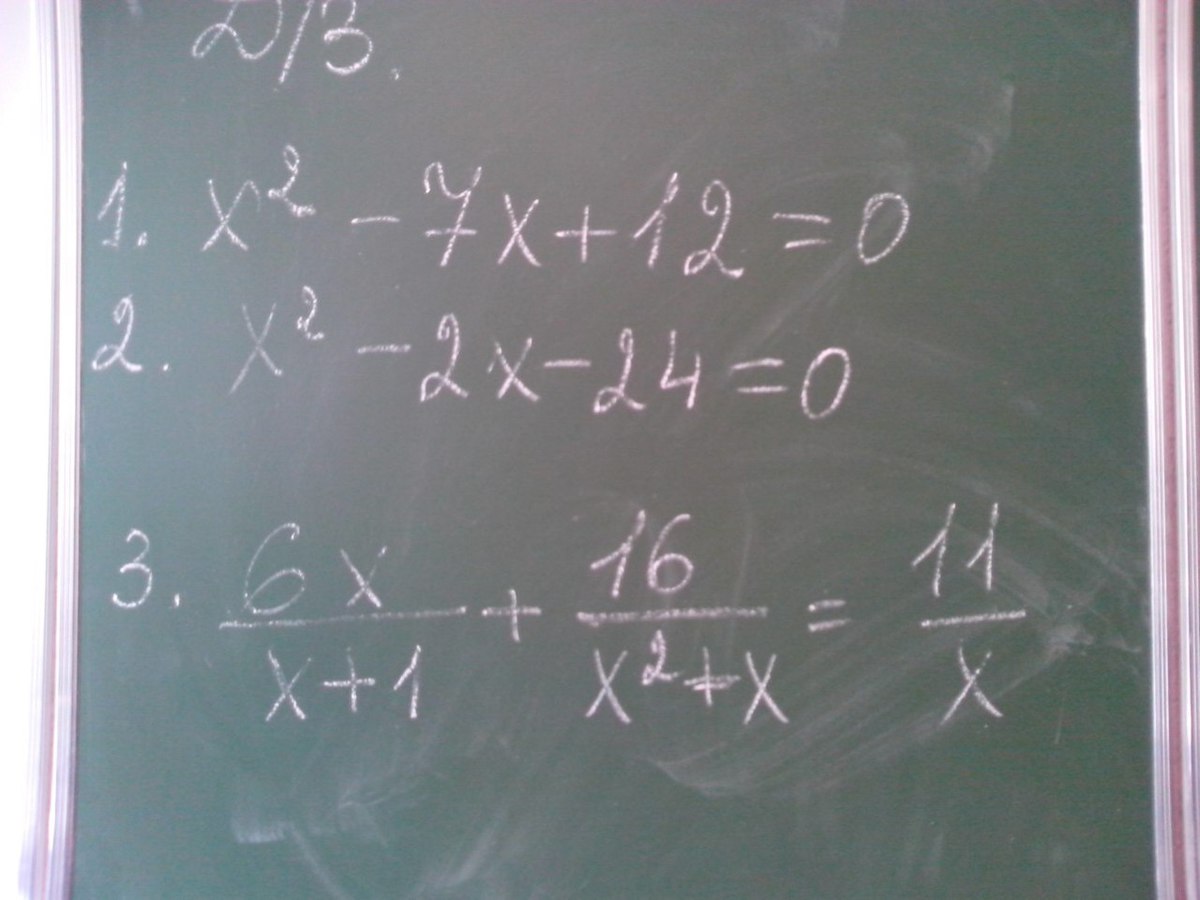 Д/З.
1. x² - 7x + 12 = 0
2. x² - 2x - 24 = 0
3. 6x/(x+1) + 16/(x²+x) = 11/x